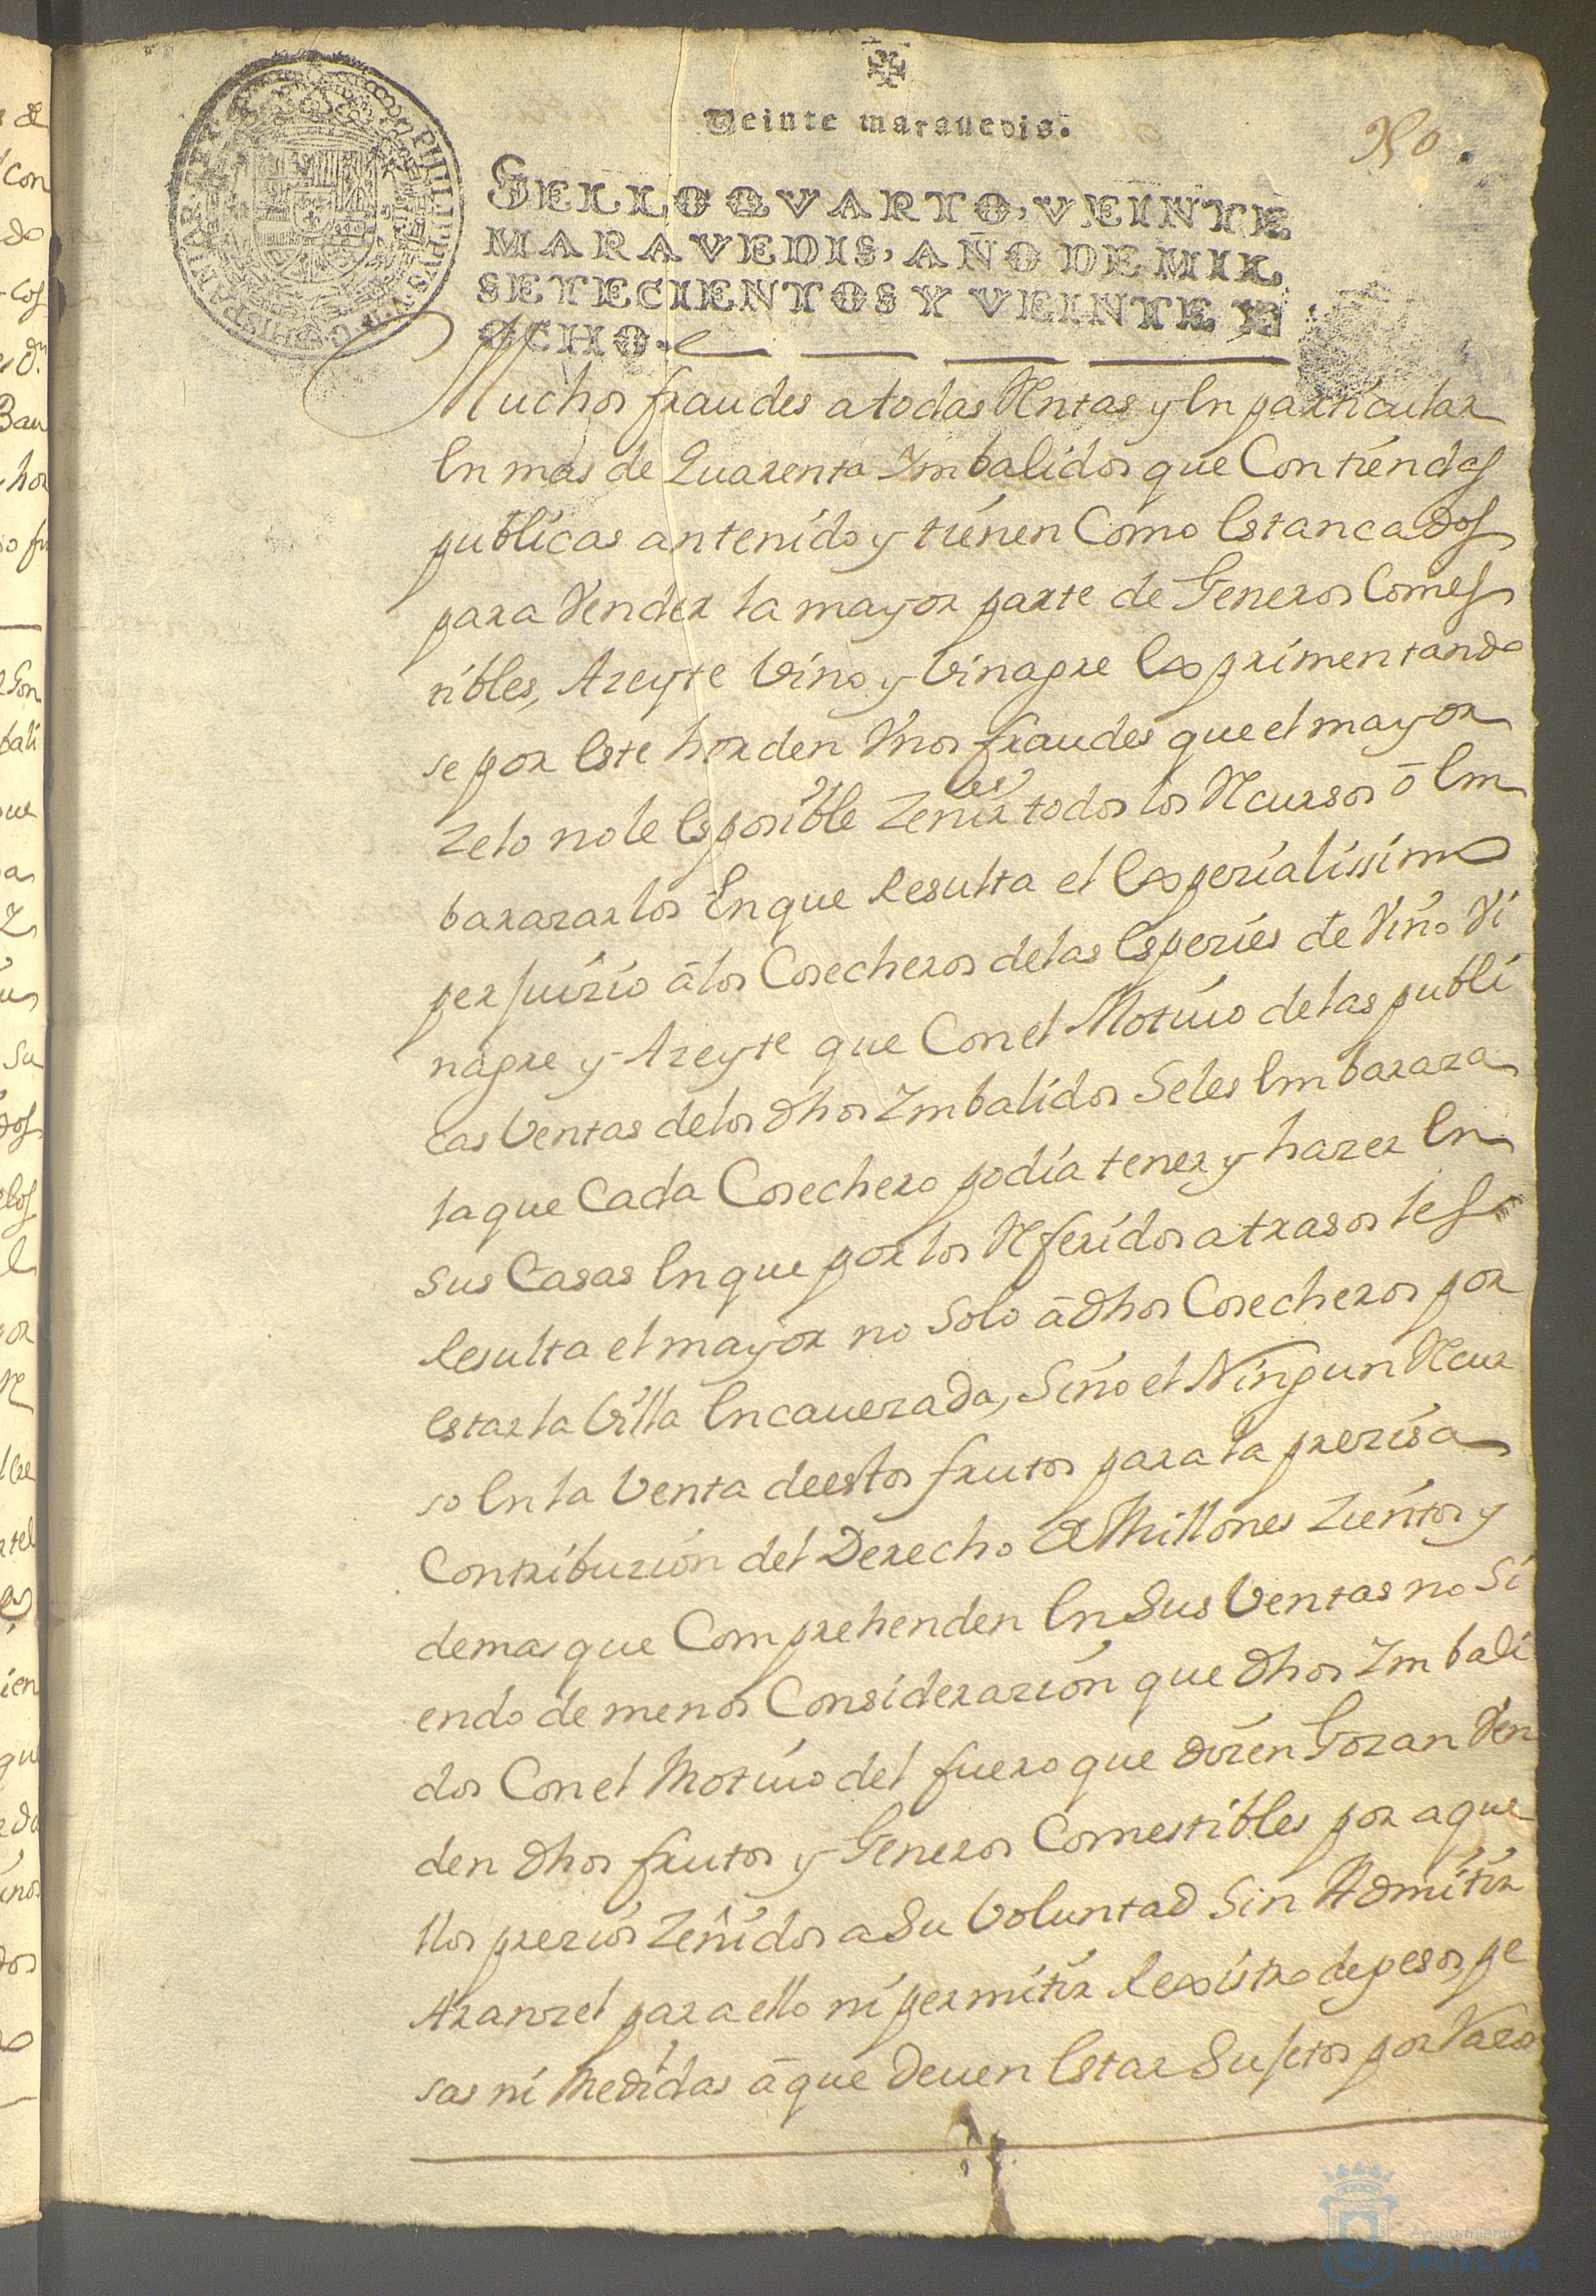 Veinte marauedis.
SELLO QVARTO, VEINTE
MARAVEDIS, AÑO DE MIL
SETECIENTOS Y VEINTE Y
OCHO.
Muchos fraudes a todas Rentas y en particular
en mas de Quarenta Imbalidos que Con tiendas
publicas an tenido y tienen Como estancados
para Vender la mayor parte de Generos Comes
tibles, Azeyte Vino y Vinagre exprimentando
se por este horden Vnos fraudes que el mayor
Zelo no le es posible Zeñir todos los Recursos ō em
barazarlos en que resulta el expezialissimo
perjuizio ā los Cosecheros de las espezies de Vino Vi
nagre y Azeyte que Con el Motiuo de las publi
cas Ventas de los dhos Imbalidos Se les embaraza
la que Cada Cosechero podia tener y hazer en
sus Casas en que por los Referidos atrasos les
resulta el mayor no Solo ā dhos Cosecheros por
estar la Villa encauezada, Sino el Ningun Recur
so en la Venta de estos frutos para la prezisa
Contribuzion del Derecho de Millones Zientos y
demas que Comprehenden en Sus Ventas no Si
endo de menos Considerazion que dhos Imbali
dos Con el Motiuo del fuero que dizen Gozan Ven
den dhos frutos y Generos Comestibles por aque
llos prezios Zeñidos a Su Voluntad Sin Admitir
Aranzel para ello ni permitir rexistro de pesos, pe
sas ni Medidas ā que Deuen estar Sujetos por Razo
Ayuntamiento
HUELVA